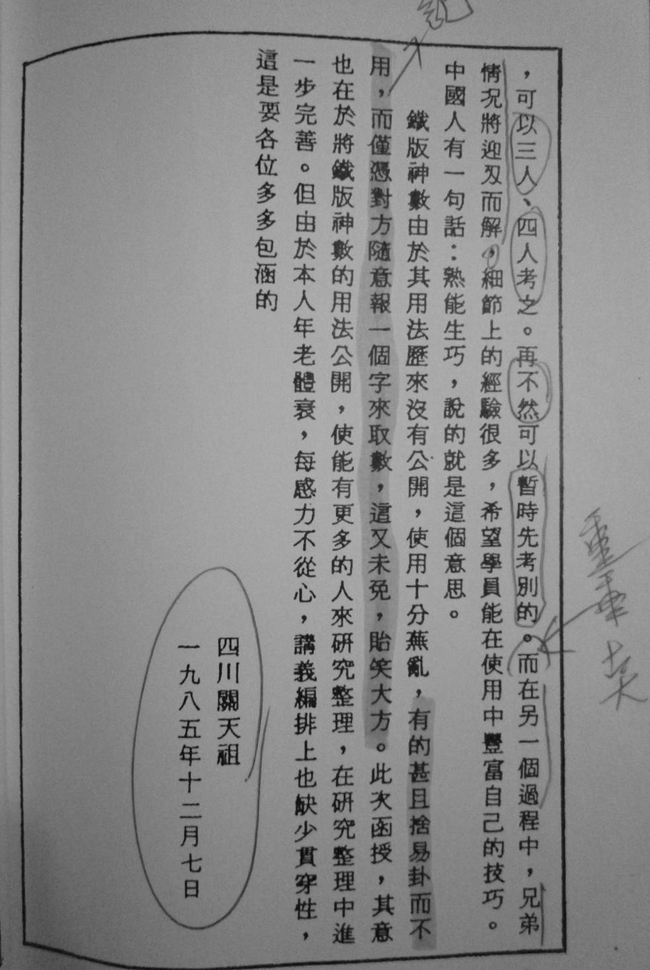 ，可以三人、四人考之。再不然可以暫時先考別的。而在另一個過程中，兄弟
情况將迎刄而解，細節上的經驗很多，希望學員能在使用中豐富自己的技巧。
中國人有一句話：熟能生巧，說的就是這個意思。
鐵版神數由於其用法歷來沒有公開，使用十分蕪亂，有的甚且捨易卦而不
用，而僅憑對方隨意報一個字來取數，這又未免，貽笑大方。此次函授，其意
也在於將鐵版神數的用法公開，使能有更多的人來研究整理，在研究整理中進
一步完善。但由於本人年老體衰，每感力不從心，講義編排上也缺少貫穿性，
這是要各位多多包涵的
四川關天祖
一九八五年十二月七日